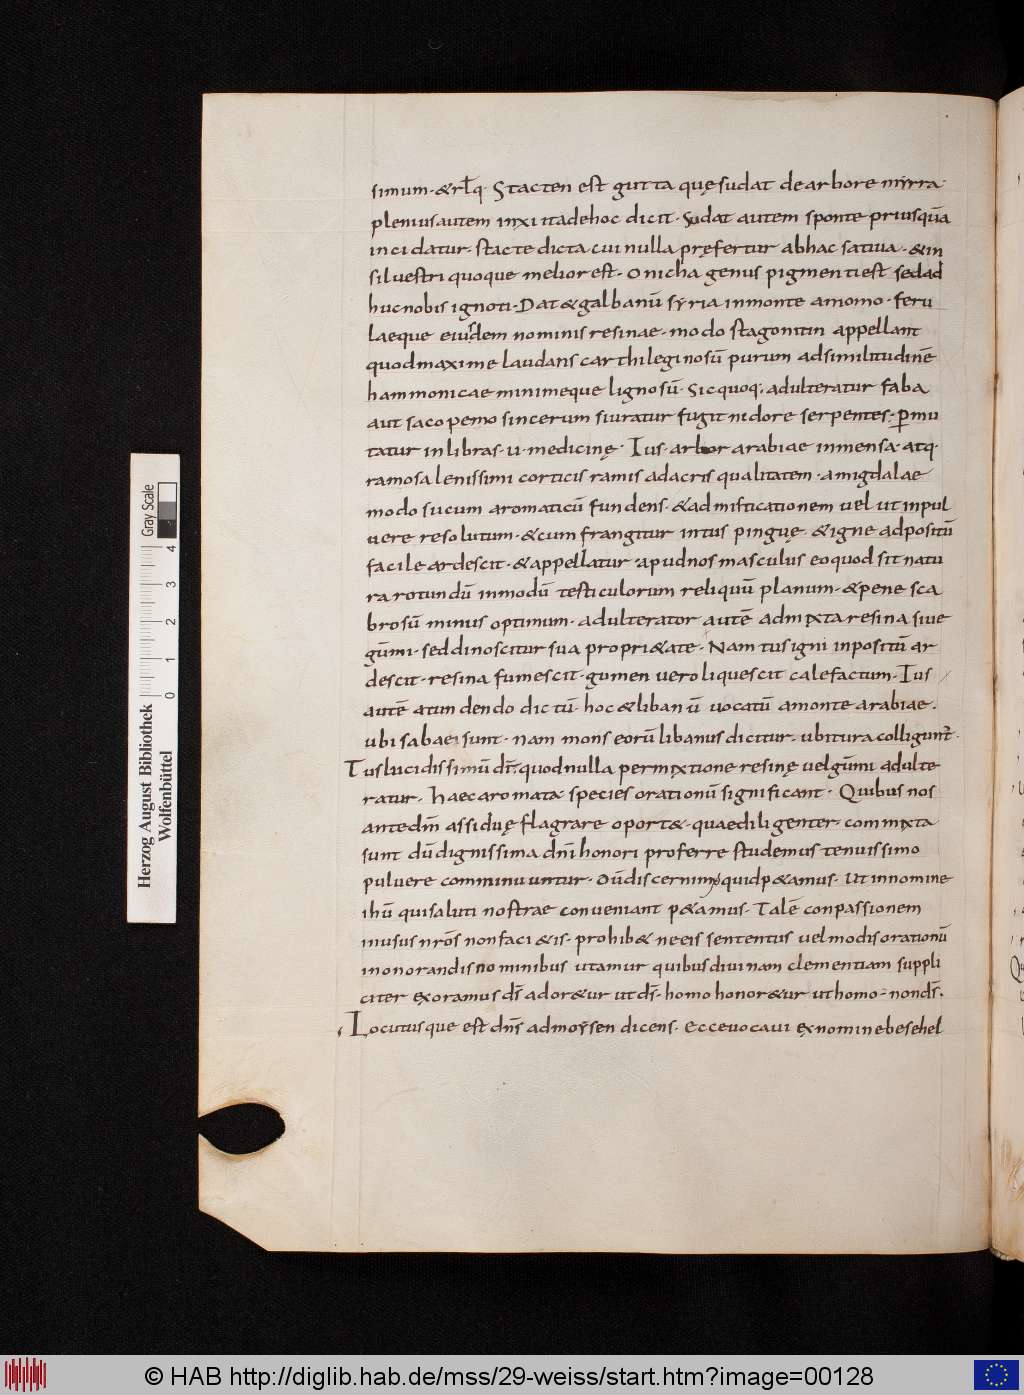 simum · &rłq · Stacten est gutta quę sudat de arbore mẏrra ·
plenius autem in xii ita de hoc dicit · Sudat autem sponte priusquā
incidatur · stacte dicta cui nulla pręfertur ab hac sativa · & in
silvestri quoque melior est · Onicha genus pigmenti est sed ad
huc nobis ignoti · Dat & galbanū sẏria in monte amomo · feru
laeque eiusdem nominis resinae · modo stagonitin appellant
quod maxime laudans carthileginosū purum ad similitudinē
hammonicae minimeque lignosū · Sic quoq; adulteratur faba
aut sacopemo sincerum si uratur fugit nidore serpentes · permu
tatur in libras · u · medicinę · Tus · arbor arabiae inmensa · atq ·
ramosa lenissimi corticis ramis ad acris qualitatem · amigdalae
modo sucum aromaticū fundens · & ad misticationem vel ut in pul
vere resolutum · & cum frangitur intus pinguę & igne adpositū
facile ardescit · & appellatur apud nos masculus eo quod sit natu
ra rotundū in modū testiculorum reliquū planum · & pene sca
brosū minus optimum · adulterator autē admixta resina sive
gūmi · sed dinoscitur sua propri&ate · Nam tus igni inpositū ar
descit · resina fumescit · gumen vero liquescit calefactum · Tus
autē a tundendo dictū · hoc & libanū vocatū a monte arabiae ·
ubi sabaei sunt · nam mons eorū libanus dicitur · ubi tura colligunt̄ ·
Tus lucidissimū dr̄ · quod nulla permixtione resinę vel gūmi adulte
ratur · haec aromata · species orationū significant · Quibus nos
ante dm̄ assiduę flagrare oport& · quae diligenter · commixta
sunt dū dignissima dn̄i honori proferre studemus tenuissimo
pulvere comminuuntur · Dū discernimus quid p&amus · Ut in nomine
ihū qui saluti nostrae conveniant p&amus · Talē conpassionem
in usus nr̄os non faci&is · prohib& ne eis sententus vel modis orationū
in onorandis nominibus utamur quibus divinam clementiam suppli
citer exoramus ds̄ ador&ur ut ds̄ · homo honor&ur ut homo · non ds̄ ·
Locutusque est dn̄s ad moẏsen dicens · Ecce vocavi ex nomine besehel
Herzog August Bibliothek
Wolfenbüttel
0 1 2 3 4
Gray Scale
© HAB http://diglib.hab.de/mss/29-weiss/start.htm?image=00128